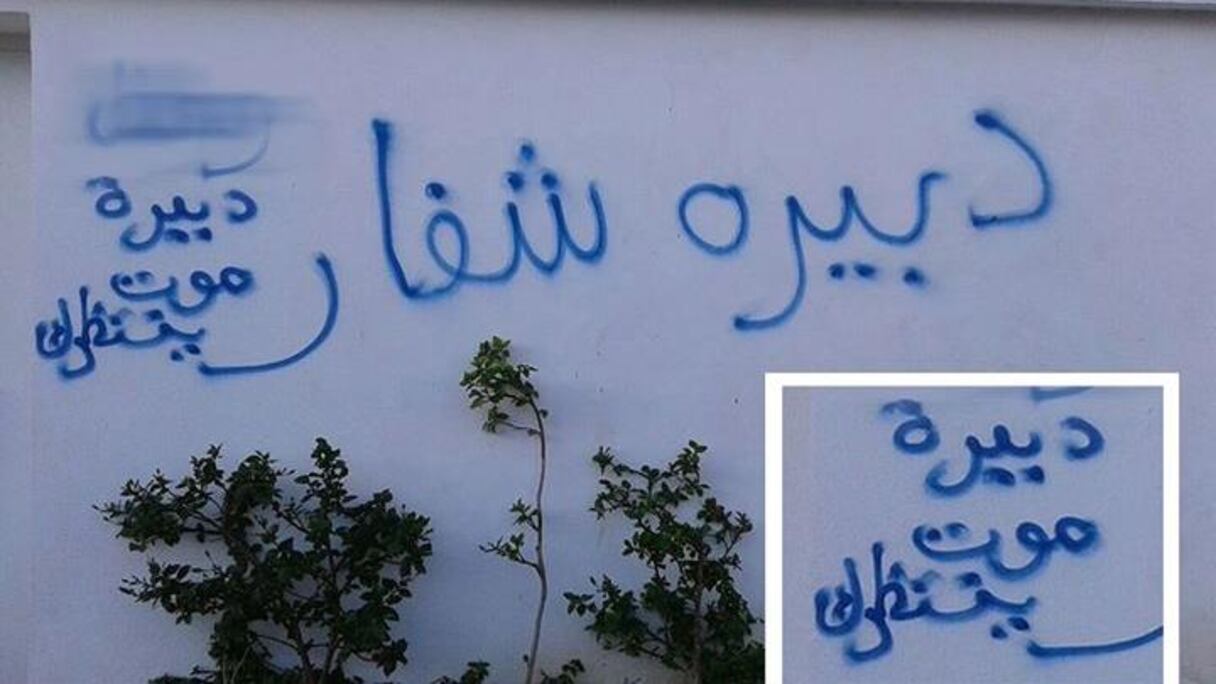 دبيره شفار
دبيرة
موت
ينتظرك
دبيرة
موت
ينتظرك